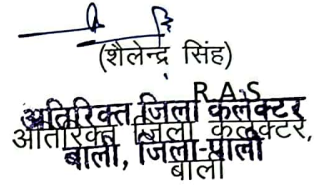 (शैलेन्द्र सिंह)
R A S
अतिरिक्त जिला कलेक्टर
अतिरिक्त जिला कलेक्टर,
बाली, जिला-पाली
बाली